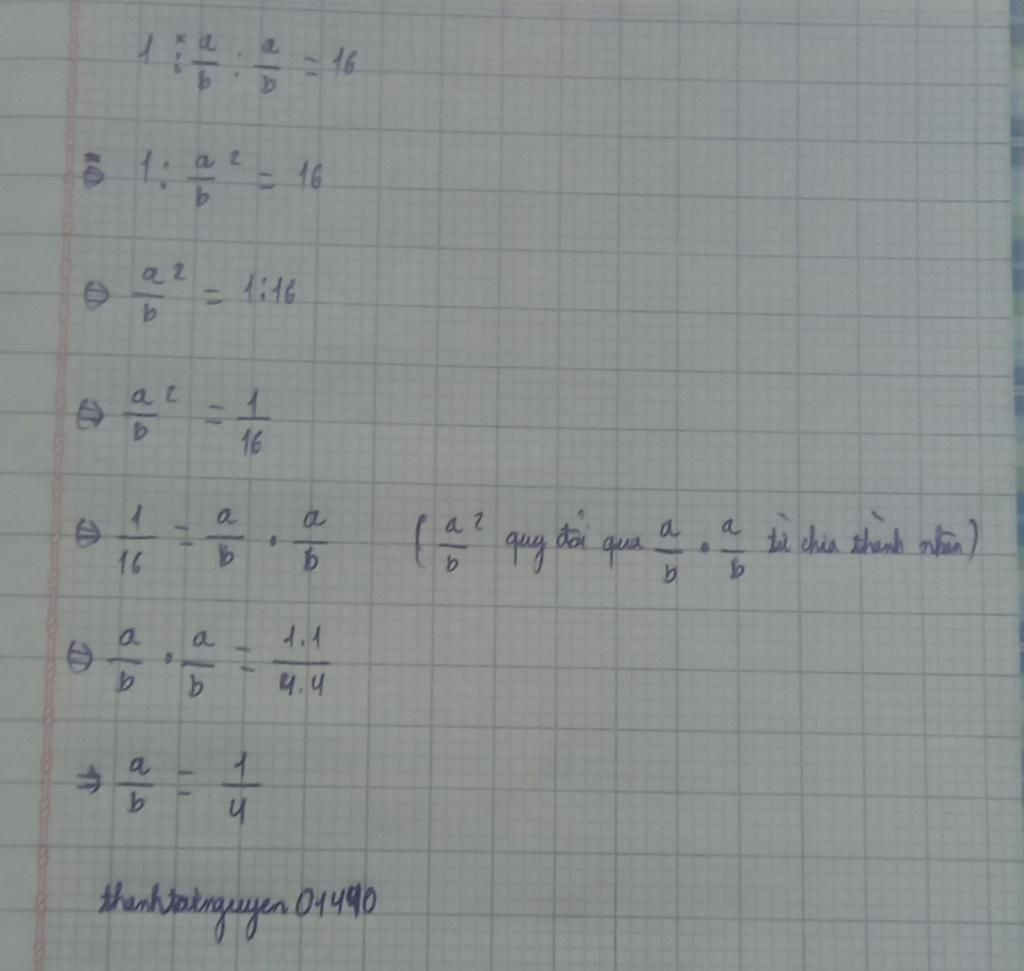 1 : a/b : a/b = 16
⇔ 1 : a²/b = 16
⇔ a²/b = 1:16
⇔ a²/b = 1/16
⇔ 1/16 = a/b . a/b (a²/b quy đổi qua a/b . a/b từ chia thành nhân)
⇔ a/b . a/b = 1.1/4.4
⇒ a/b = 1/4
thanhtainguyen01490